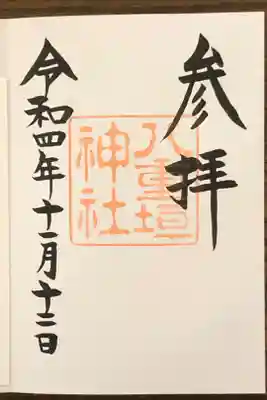 参拝
八重垣
神社
令和四年十一月十二日